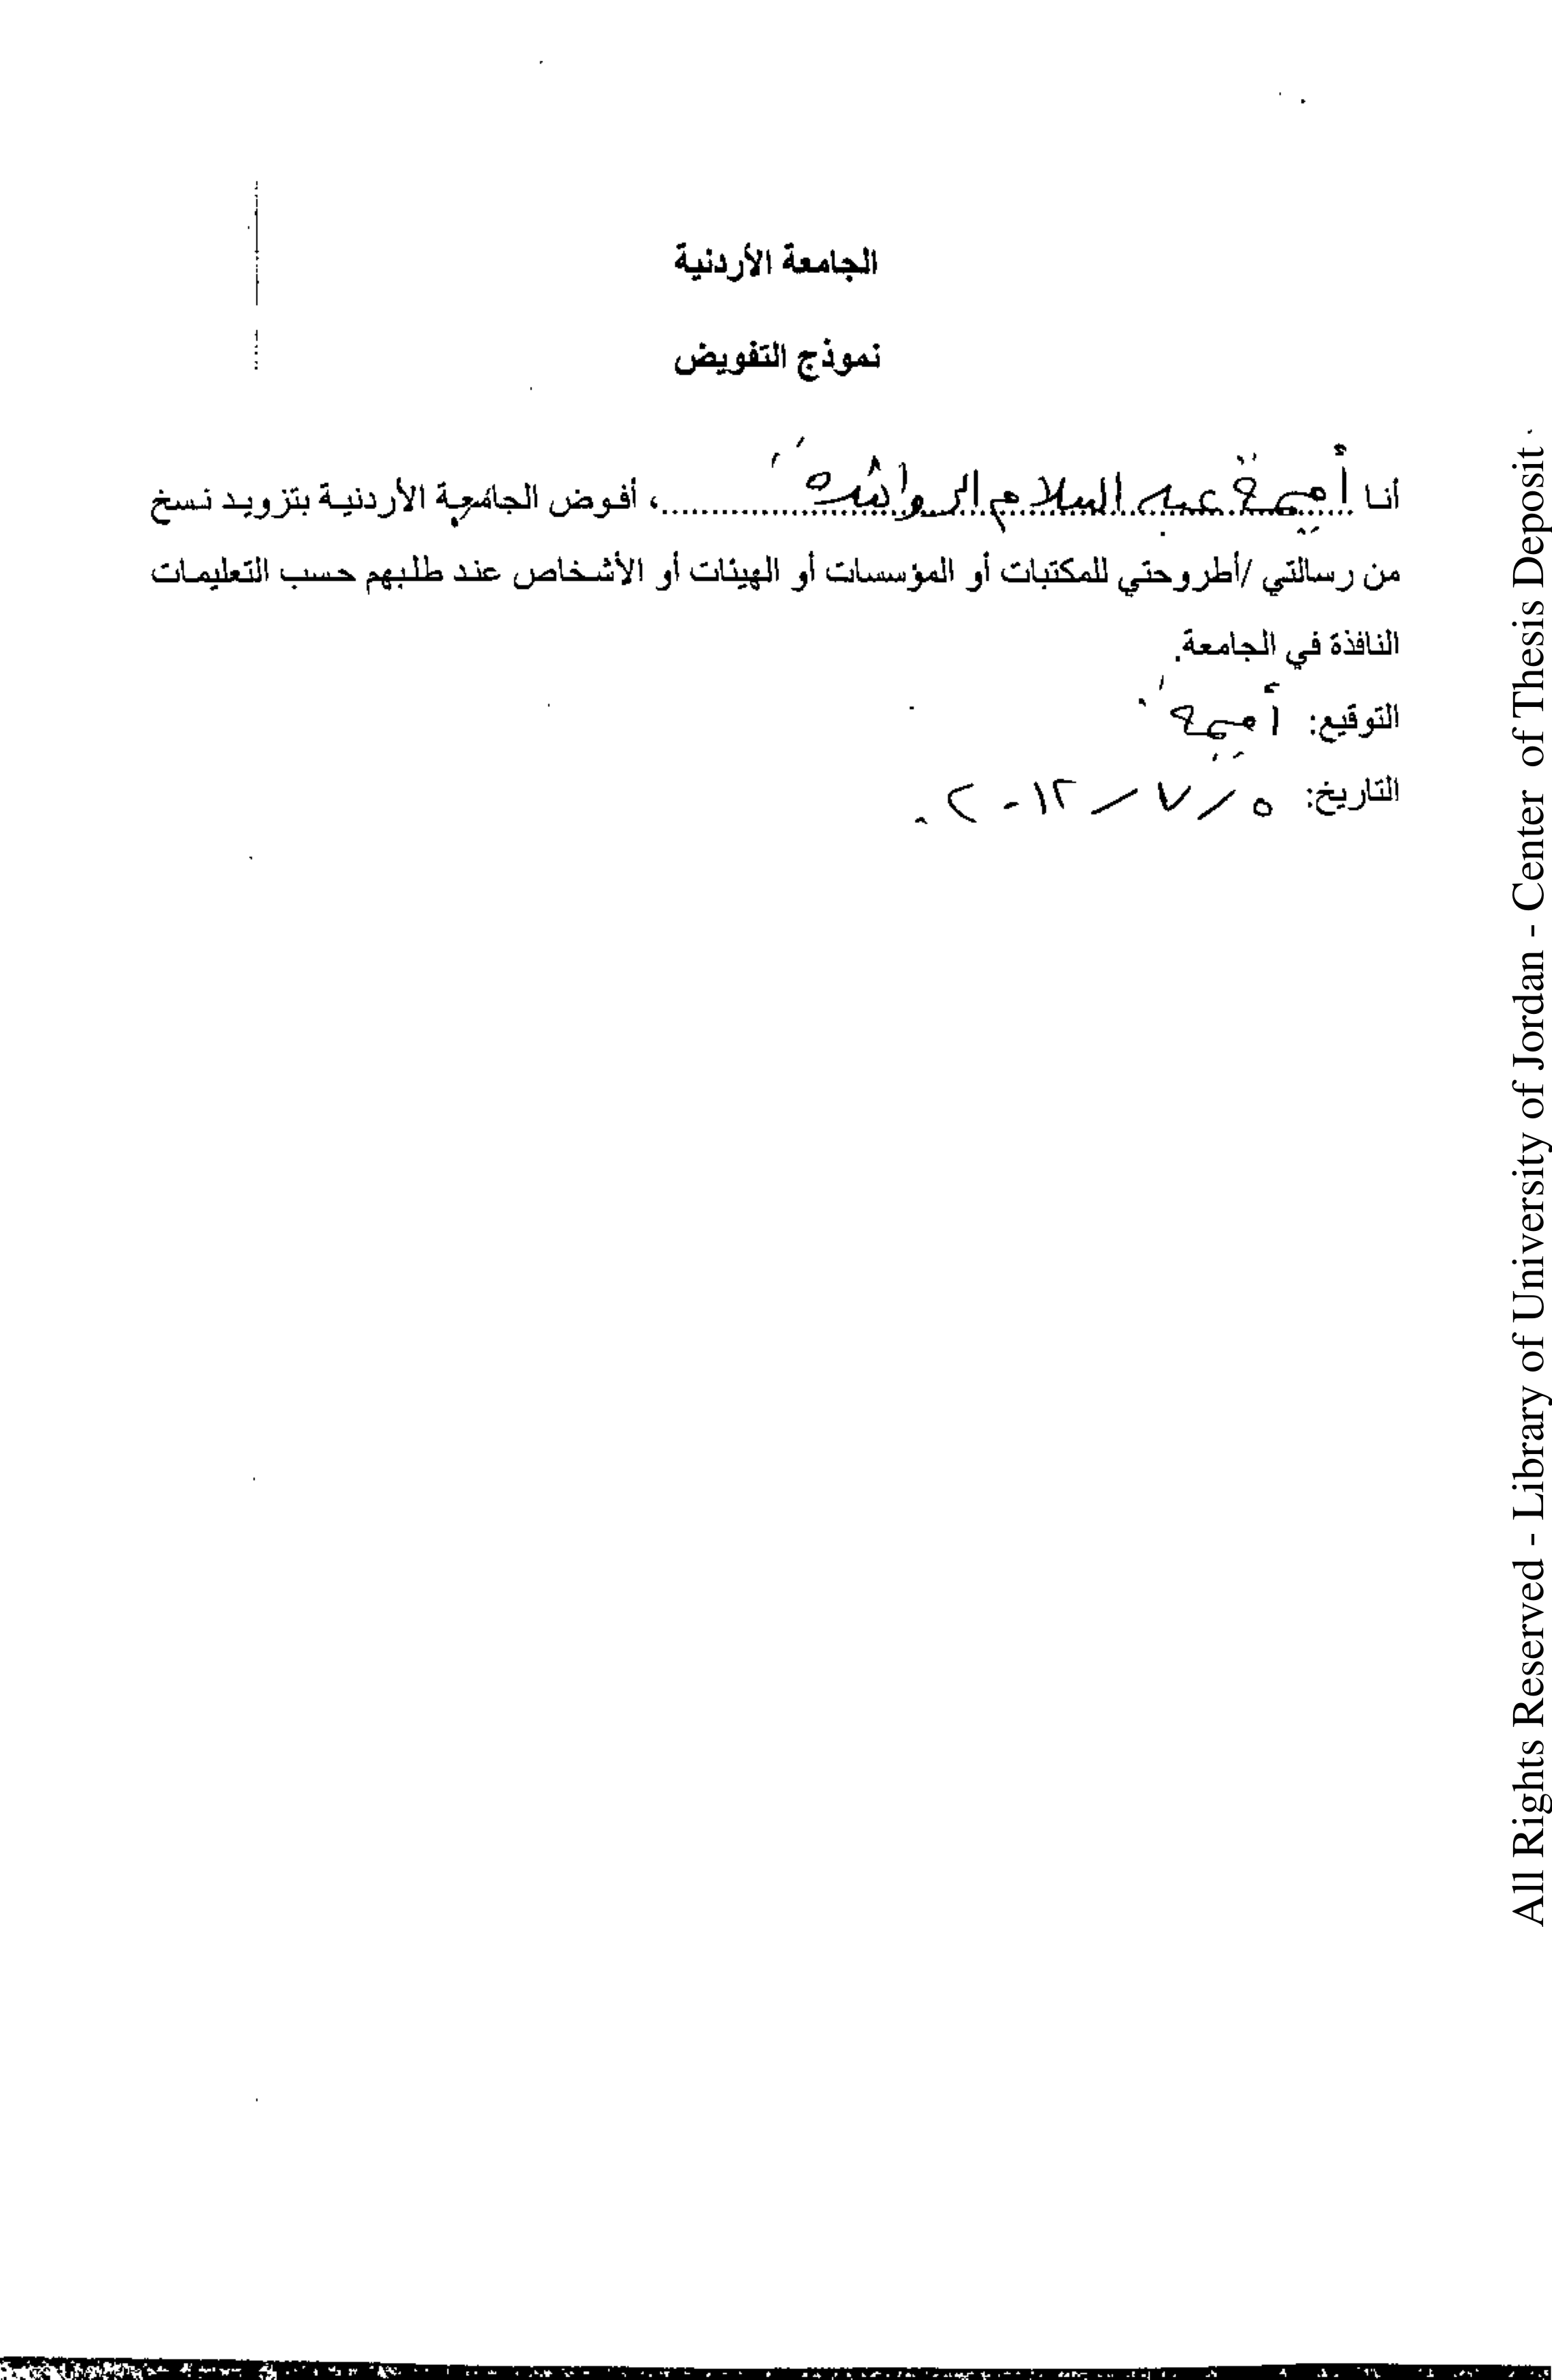 الجامعة الأردنية
نموذج التفويض
أنا أميمة عبد السلام الرواشده، أفوض الجامعة الأردنية بتزويد نسخ
من رسالتي /أطروحتي للمكتبات أو المؤسسات أو الهيئات أو الأشخاص عند طلبهم حسب التعليمات
النافذة في الجامعة.
التوقيع: أميمة
التاريخ: ٥ / ٧ / ٢٠١٢
All Rights Reserved - Library of University of Jordan - Center of Thesis Deposit